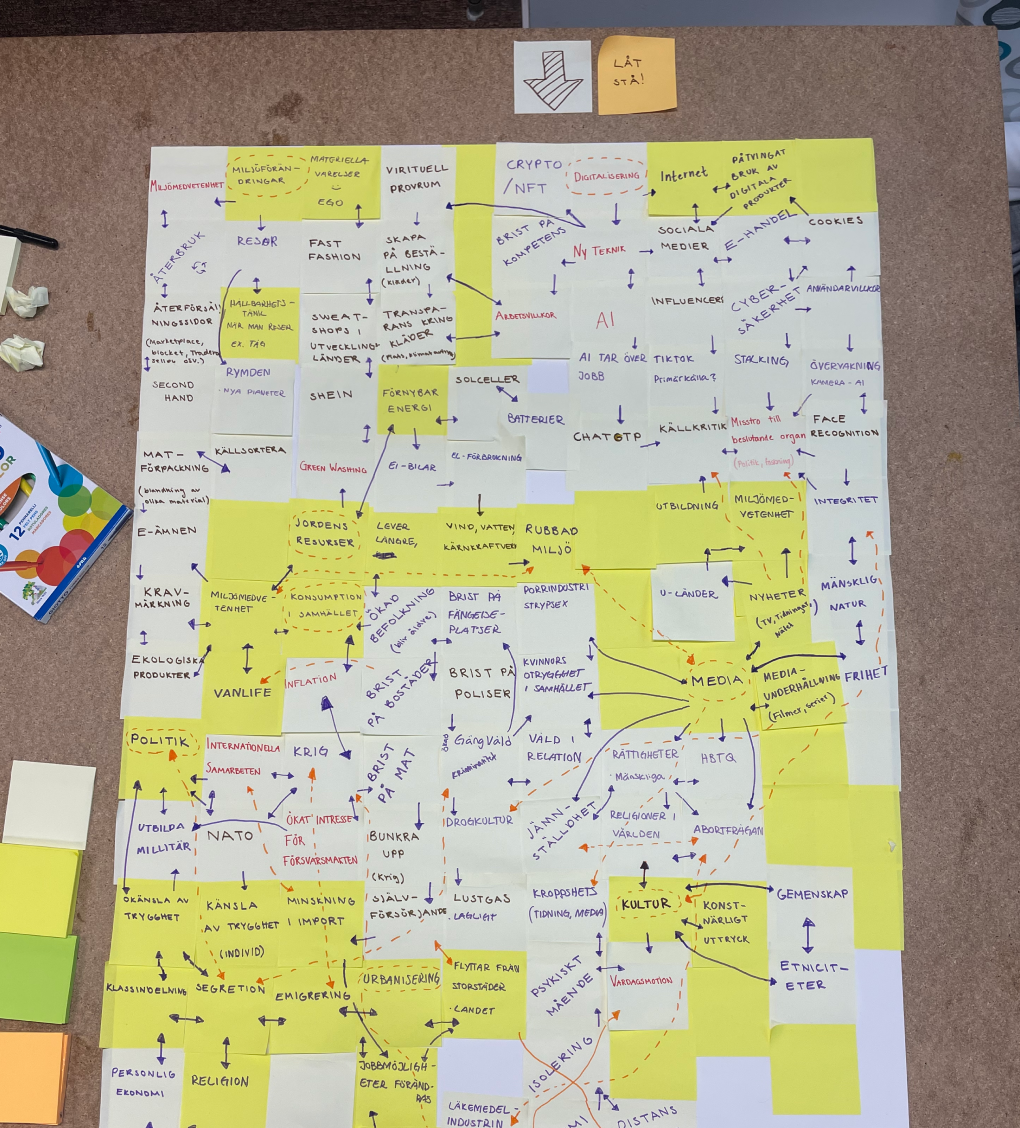 LÅT
STÅ!
MILJÖMEDVETENHET
MILJÖFÖRÄN-
DRINGAR
MATERIELLA
VARELSER
EGO
VIRITUELL
PROVRUM
CRYPTO
/NFT
DIGITALISERING
Internet
PÅTVINGAT
BRUK AV
DIGITALA
PRODUKTER
ÅTERBRUK
RESOR
FAST
FASHION
SKAPA
PÅ BESTÄ-
LLNING
(kläder)
BRIST PÅ
KOMPETENS
NY TEKNIK
SOCIALA
MEDIER
E-HANDEL
COOKIES
ÅTERFÖRSÄLJ
NINGSSIDOR
(Marketplace,
blocket, Tradera
sellpy osv.)
HÅLLBARHETS-
TÄNK
NÄR MAN RESER
EX. TÅG
SWEAT-
SHOPS I
UTVECKLINGS-
LÄNDER
TRANSPA-
RANS KRING
KLÄDER
ARBETSVILLKOR
AI
INFLUENCERS
CYBER-
SÄKERHET
ANVÄNDARVILLKOR
SECOND
HAND
RYMDEN
- NYA PLANETER
SHEIN
FÖRNYBAR
ENERGI
SOLCELLER
BATTERIER
AI TAR ÖVER
JOBB
TIKTOK
Primärkälla?
STALKING,
ÖVERVAKNING
KAMERA - AI
MAT-
FÖRPACKNING
(blandning av
olika material)
KÄLLSORTERA
GREEN WASHING
EL-BILAR
EL-FÖRBRUKNING
CHATGTP
KÄLLKRITIK
Misstro till
beslutande organ
(Politik, forskning)
FACE
RECOGNITION
E-ÄMNEN
JORDENS
RESURSER
LEVER
LÄNGRE,
VIND, VATTEN,
KÄRNKRAFTVED
RUBBAD
MILJÖ
UTBILDNING
MILJÖMED-
VETENHET
INTEGRITET
KRAV-
MÄRKNING
MILJÖMEDVE-
TENHET
KONSUMPTION
SAMHÄLLET
ÖKAD
BEFOLKNING
(blir äldre)
BRIST PÅ
FÄNGELSE-
PLATSER
PORRINDUSTRI
STRYPSEX
U-LÄNDER
NYHETER
(TV, Tidningar,
Nätet
MÄNSKLIG
NATUR
EKOLOGISKA
PRODUKTER
VANLIFE
INFLATION
BRIST
PÅ BOSTÄDER
BRIST PÅ
POLISER
KVINNORS
OTRYGGHET
I SAMHÄLLET
MEDIA
MEDIA-
UNDERHÅLLNING
(Filmer, serier)
FRIHET
POLITIK
INTERNATIONELLA
SAMARBETEN
KRIG
BRIST
PÅ MAT
Gäng Våld
Kriminalitet
VÅLD I
RELATION
RÄTTIGHETER
- Mänskliga
HBTQ
UTBILDA
MILLITÄR
NATO
ÖKAT INTRESSE
FÖR
FÖRSVARSMAKTEN
BUNKRA
UPP
(Krig)
DROGKULTUR
JÄMN-
STÄLLDHET
RELIGIONER I
VÄRLDEN
ABORTFRÅGAN
OKÄNSLA AV
TRYGGHET
KÄNSLA
AV TRYGGHET
(INDIVID)
MINSKNING
I IMPORT
SJÄLV-
FÖRSÖRJANDE
LUSTGAS
LAGLIGT
KROPPSHETS
(TIDNING, MEDIA)
KULTUR
KONST-
NÄRLIGT
UTTRYCK
GEMENSKAP
KLASSINDELNING
SEGRETION
EMIGRERING
URBANISERING
FLYTTAR FRÅN
STORSTÄDER
- LANDET
PSYKISKT
MÅENDE
VARDAGSMOTION
ETNICIT-
ETER
PERSONLIG
EKONOMI
RELIGION
JOBBMÖJLIGH-
ETER FÖRÄND-
RAS
LÄKEMEDEL-
INDUSTRIN
ISOLERING
DISTANS
12